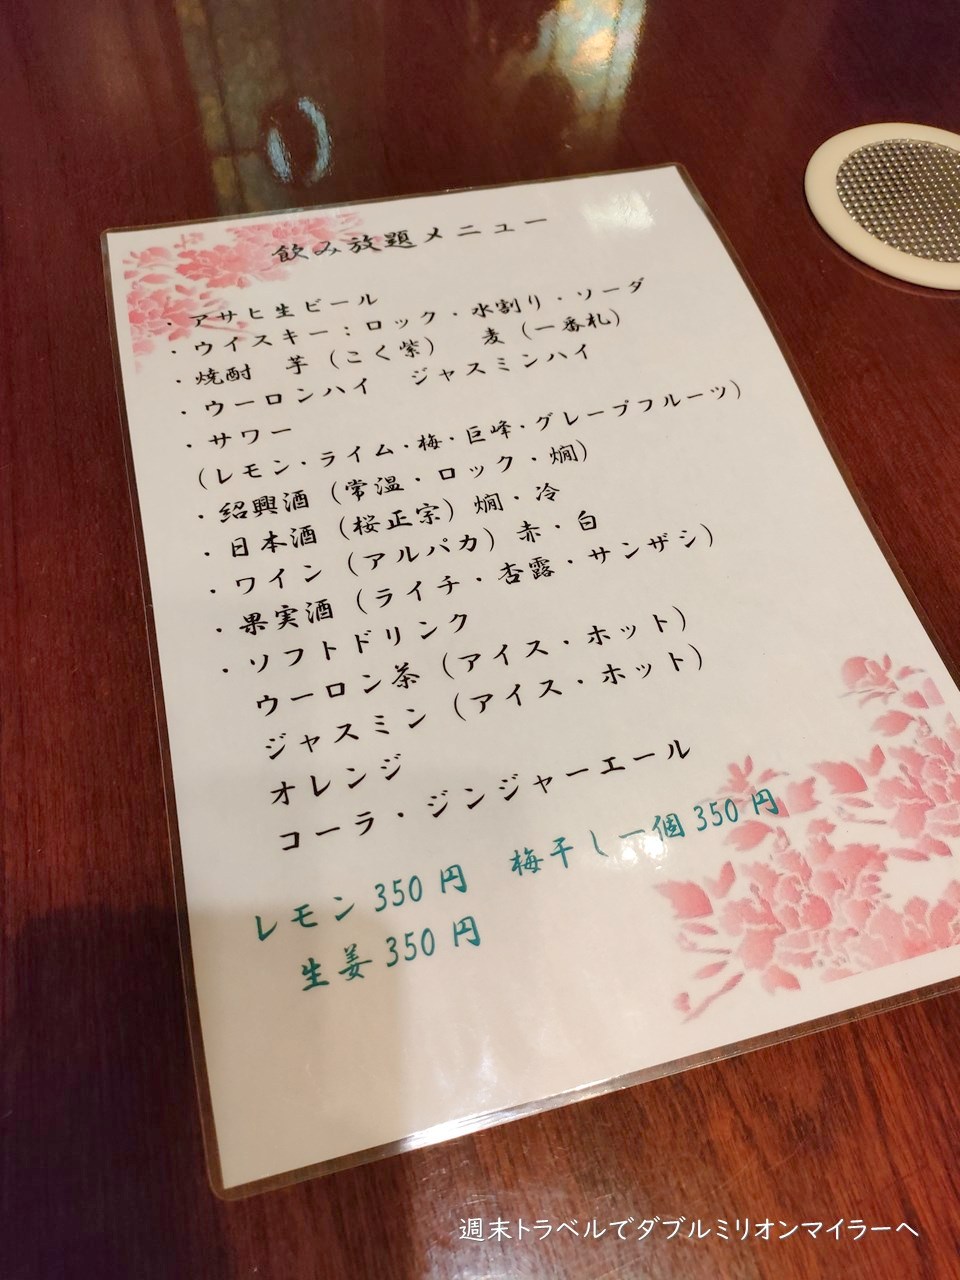 飲み放題メニュー
・アサヒ生ビール
・ウイスキー：ロック・水割り・ソーダ
・焼酎　芋（こく紫）　麦（一番札）
・ウーロンハイ　ジャスミンハイ
・サワー
（レモン・ライム・梅・巨峰・グレープフルーツ）
・紹興酒（常温・ロック・燗）
・日本酒（桜正宗）燗・冷
・ワイン（アルパカ）赤・白
・果実酒（ライチ・杏露・サンザシ）
・ソフトドリンク
ウーロン茶（アイス・ホット）
ジャスミン（アイス・ホット）
オレンジ
コーラ・ジンジャーエール
レモン350円　梅干し一個350円
生姜350円
週末トラベルでダブルミリオンマイラーへ